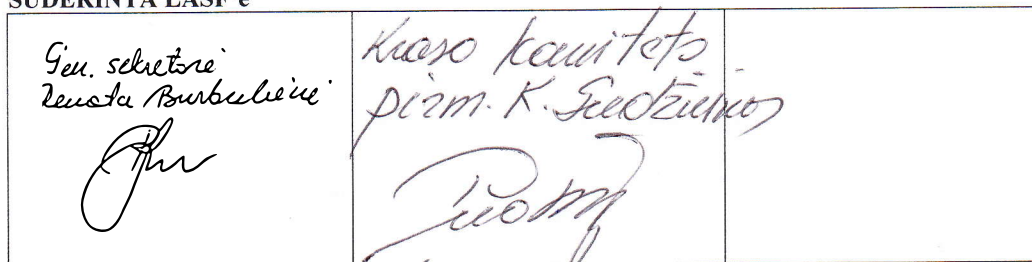 SUDERINTA LASF'e
Gen. sekretorė
Renata Burbulienė
Kroso komiteto
pirm. K. Gudžiūnas